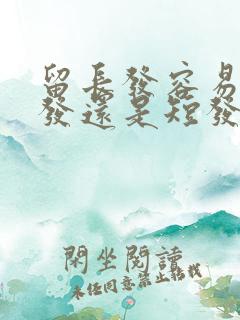 留長發容易
發還是短發
閑坐閱讀
未任同意禁止轉載